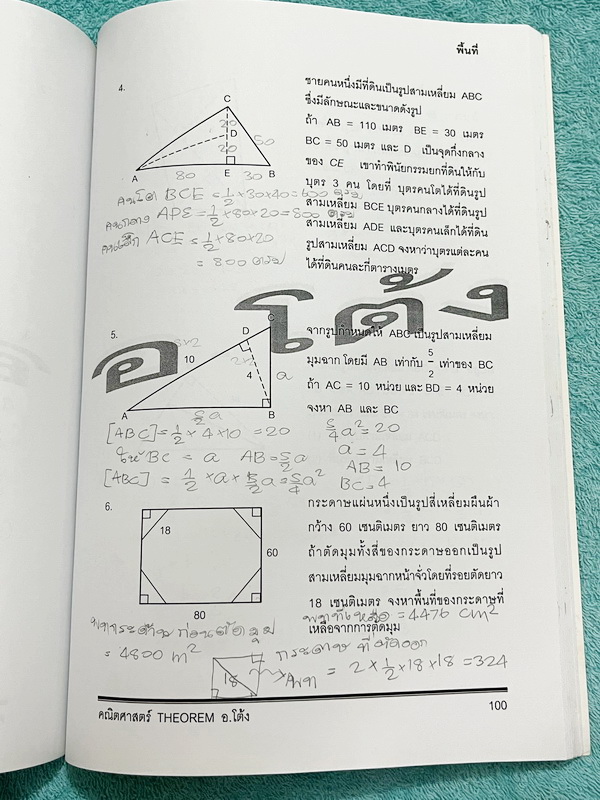 พื้นที่
4.
C
20
D
50
20
A
E
B
80
30
ชายคนหนึ่งมีที่ดินเป็นรูปสามเหลี่ยม ABC
ซึ่งมีลักษณะและขนาดดังรูป
ถ้า AB = 110 เมตร BE = 30 เมตร
BC = 50 เมตร และ D เป็นจุดกึ่งกลาง
ของ CE เขาทำพินัยกรรมยกที่ดินให้กับ
บุตร 3 คน โดยที่ บุตรคนโตได้ที่ดินรูป
สามเหลี่ยม BCE บุตรคนกลางได้ที่ดินรูป
สามเหลี่ยม ADE และบุตรคนเล็กได้ที่ดิน
รูปสามเหลี่ยม ACD จงหาว่าบุตรแต่ละคน
ได้ที่ดินคนละกี่ตารางเมตร
คนโต BCE = 1/2 × 30 × 40 = 600 ตรม
คนกลาง ADE = 1/2 × 80 × 20 = 800 ตรม
คนเล็ก ACE = 1/2 × 80 × 20
= 800 ตรม
อ โต้ง
5.
C
D
10
4
a
A
B
5/2 a
จากรูปกำหนดให้ ABC เป็นรูปสามเหลี่ยม
มุมฉาก โดยมี AB เท่ากับ 5/2 เท่าของ BC
ถ้า AC = 10 หน่วย และ BD = 4 หน่วย
จงหา AB และ BC
[ABC] = 1/2 × 4 × 10 = 20
ให้ BC = a AB = 5/2 a
[ABC] = 1/2 × a × 5/2 a = 5/4 a²
5/4 a² = 20
a = 4
AB = 10
BC = 4
6.
18
60
80
กระดาษแผ่นหนึ่งเป็นรูปสี่เหลี่ยมผืนผ้า
กว้าง 60 เซนติเมตร ยาว 80 เซนติเมตร
ถ้าตัดมุมทั้งสี่ของกระดาษออกเป็นรูป
สามเหลี่ยมมุมฉากหน้าจั่วโดยที่รอยตัดยาว
18 เซนติเมตร จงหาพื้นที่ของกระดาษที่
เหลือจากการตัดมุม
พทที่เหลือ = 4476 cm²
พทกระดาษ ก่อนตัด มุม
= 4800 m²
กระดาษ ที่ ตัดออก
18
พท = 2 × 1/2 × 18 × 18 = 324
คณิตศาสตร์ THEOREM อ.โต้ง
100